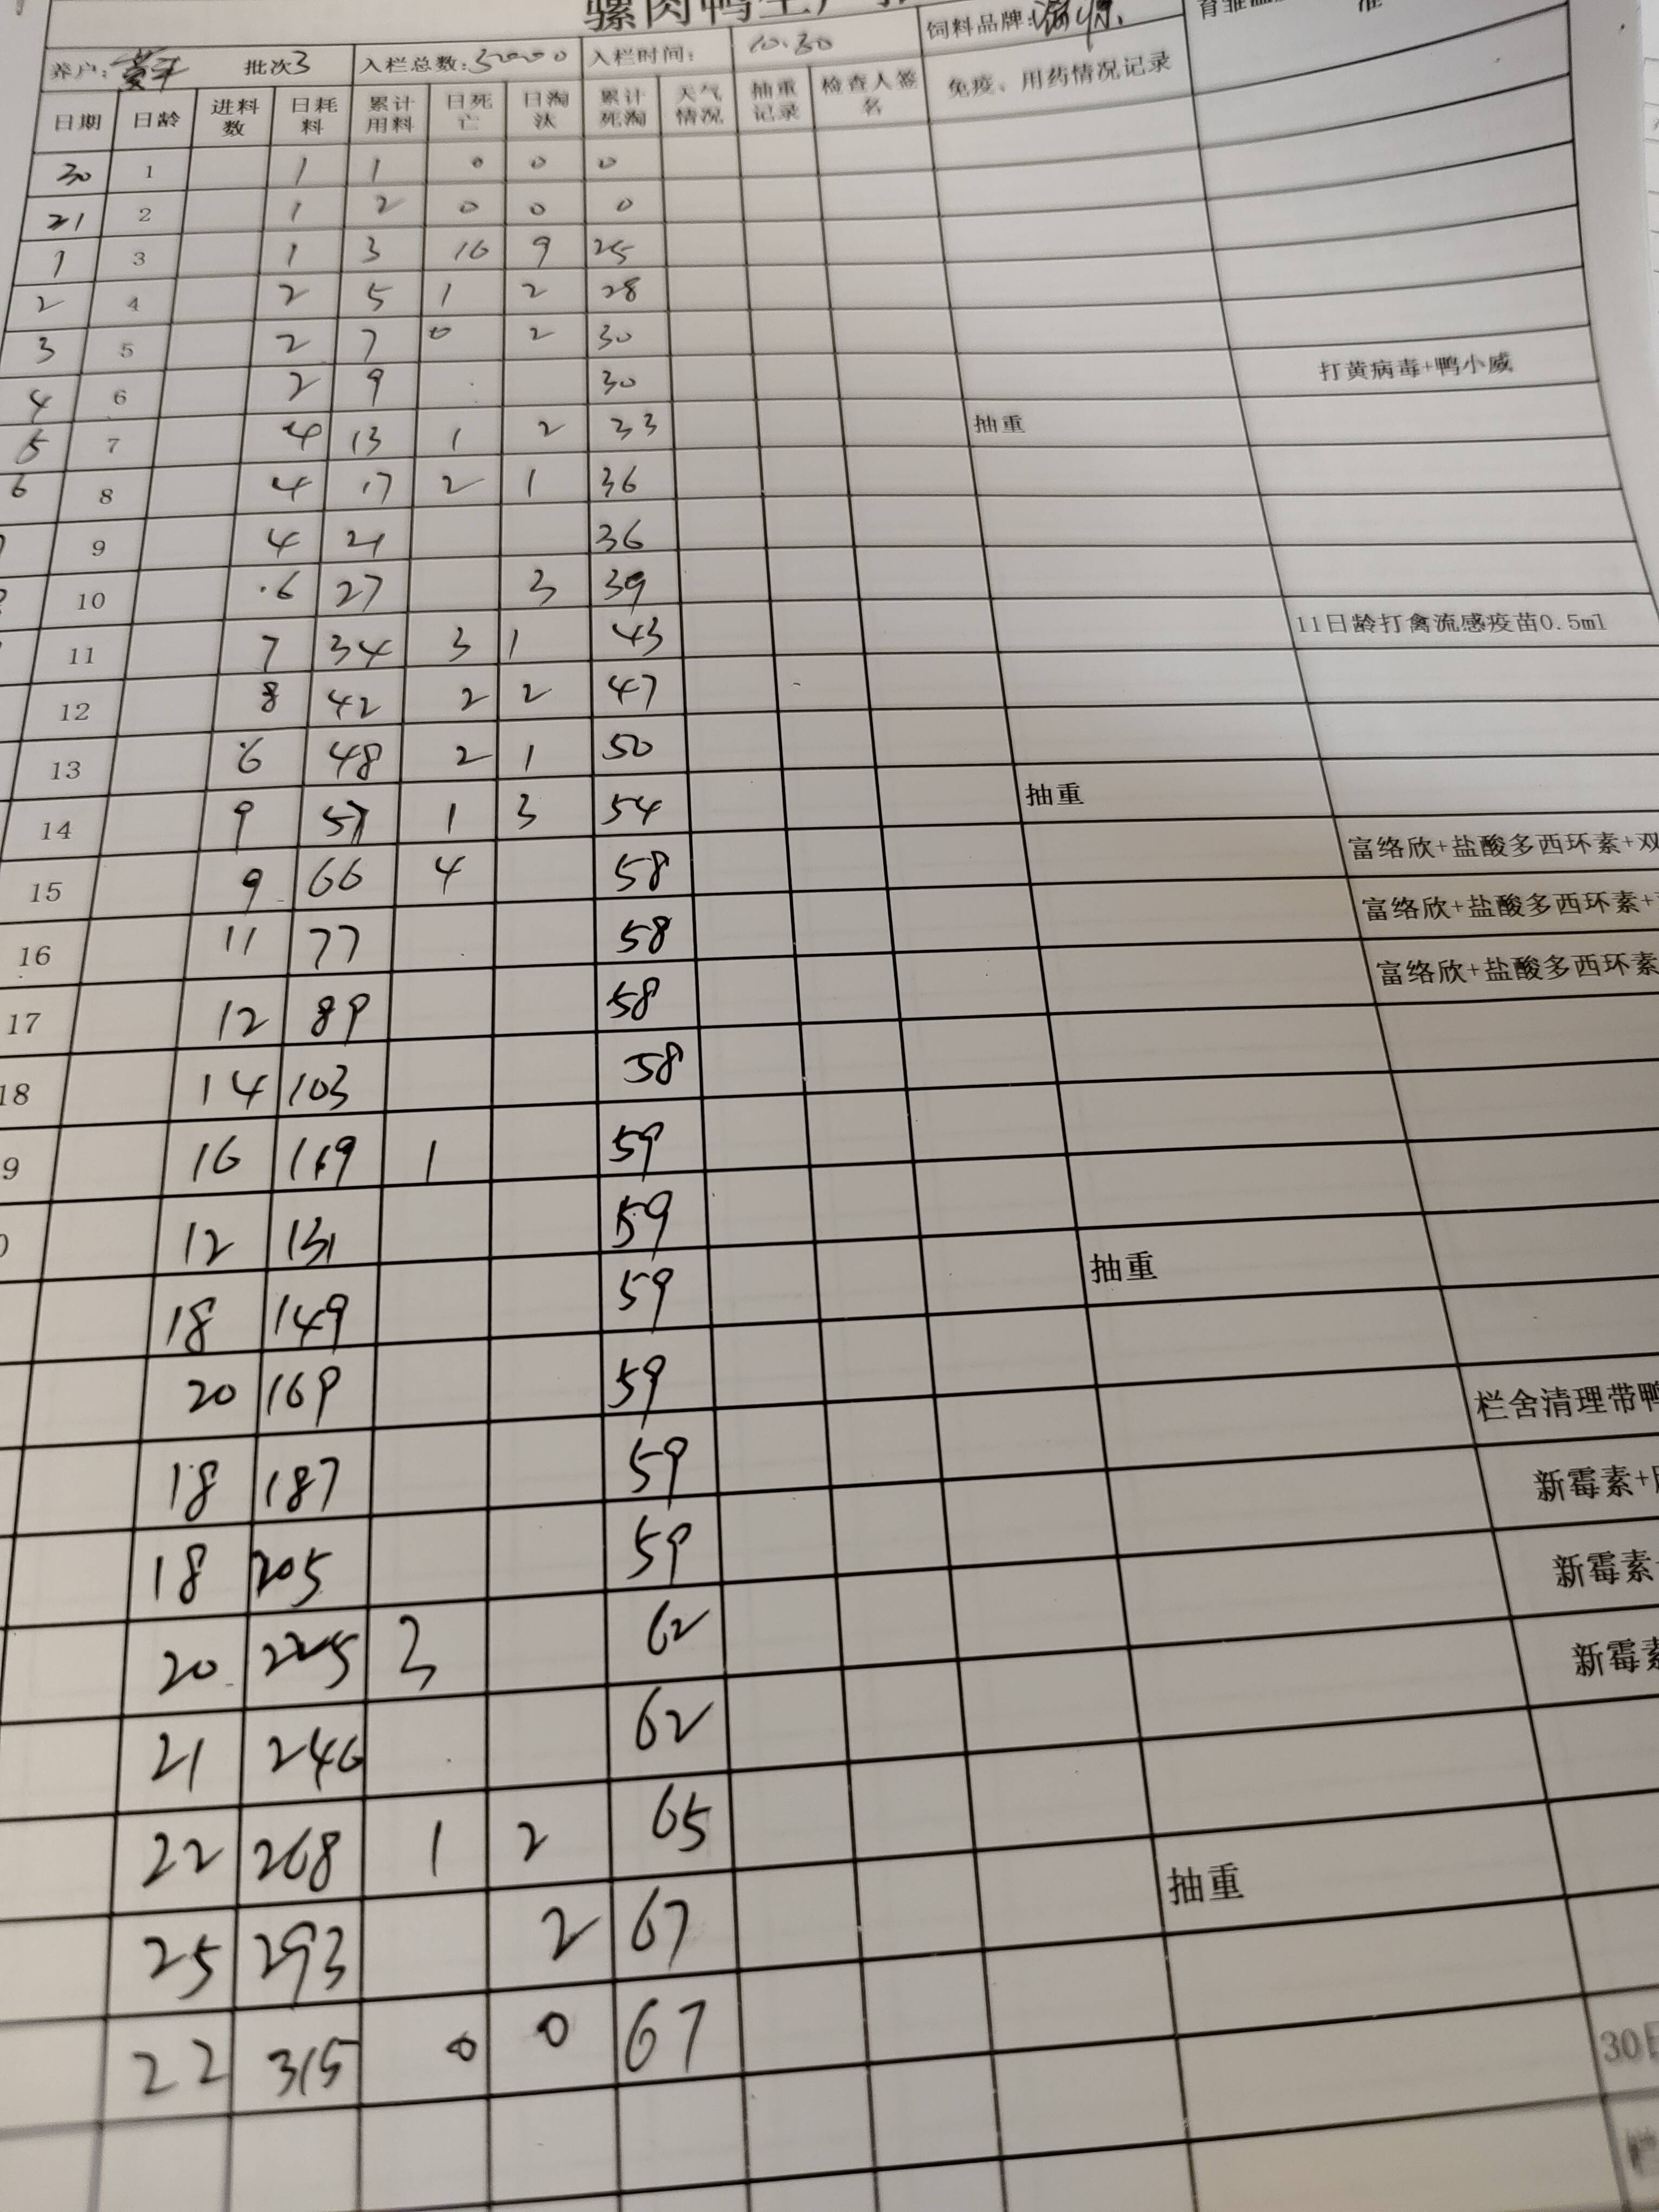 骡肉鸭生产
养户: 批次3 入栏总数: 入栏时间: 10.30 饲料品牌:
日期 日龄 进料数 日耗料 累计用料 日死亡 日淘汰 累计死淘 天气情况 抽重记录 检查人签名 免疫、用药情况记录
30 1 1 1 0 0 0
31 2 1 2 0 0 0
1 3 1 3 16 9 25
2 4 2 5 1 2 28
3 5 2 7 0 2 30
4 6 2 9 30 打黄病毒+鸭小威
5 7 4 13 1 2 33 抽重
6 8 4 17 2 1 36
9 4 21 36
10 6 27 3 39
11 7 34 3 1 43 11日龄打禽流感疫苗0.5ml
12 8 42 2 2 47
13 6 48 2 1 50
14 9 57 1 3 54 抽重
15 9 66 4 58 富络欣+盐酸多西环素+双
16 11 77 58 富络欣+盐酸多西环素+
17 12 89 58 富络欣+盐酸多西环素
18 14 103 58
9 16 119 1 59
12 131 59
18 149 59 抽重
20 169 59
18 187 59 栏舍清理带鸭
18 205 59 新霉素+
20 225 3 62 新霉素
21 246 62 新霉素
22 268 1 2 65
25 293 2 67 抽重
22 315 0 0 67
30